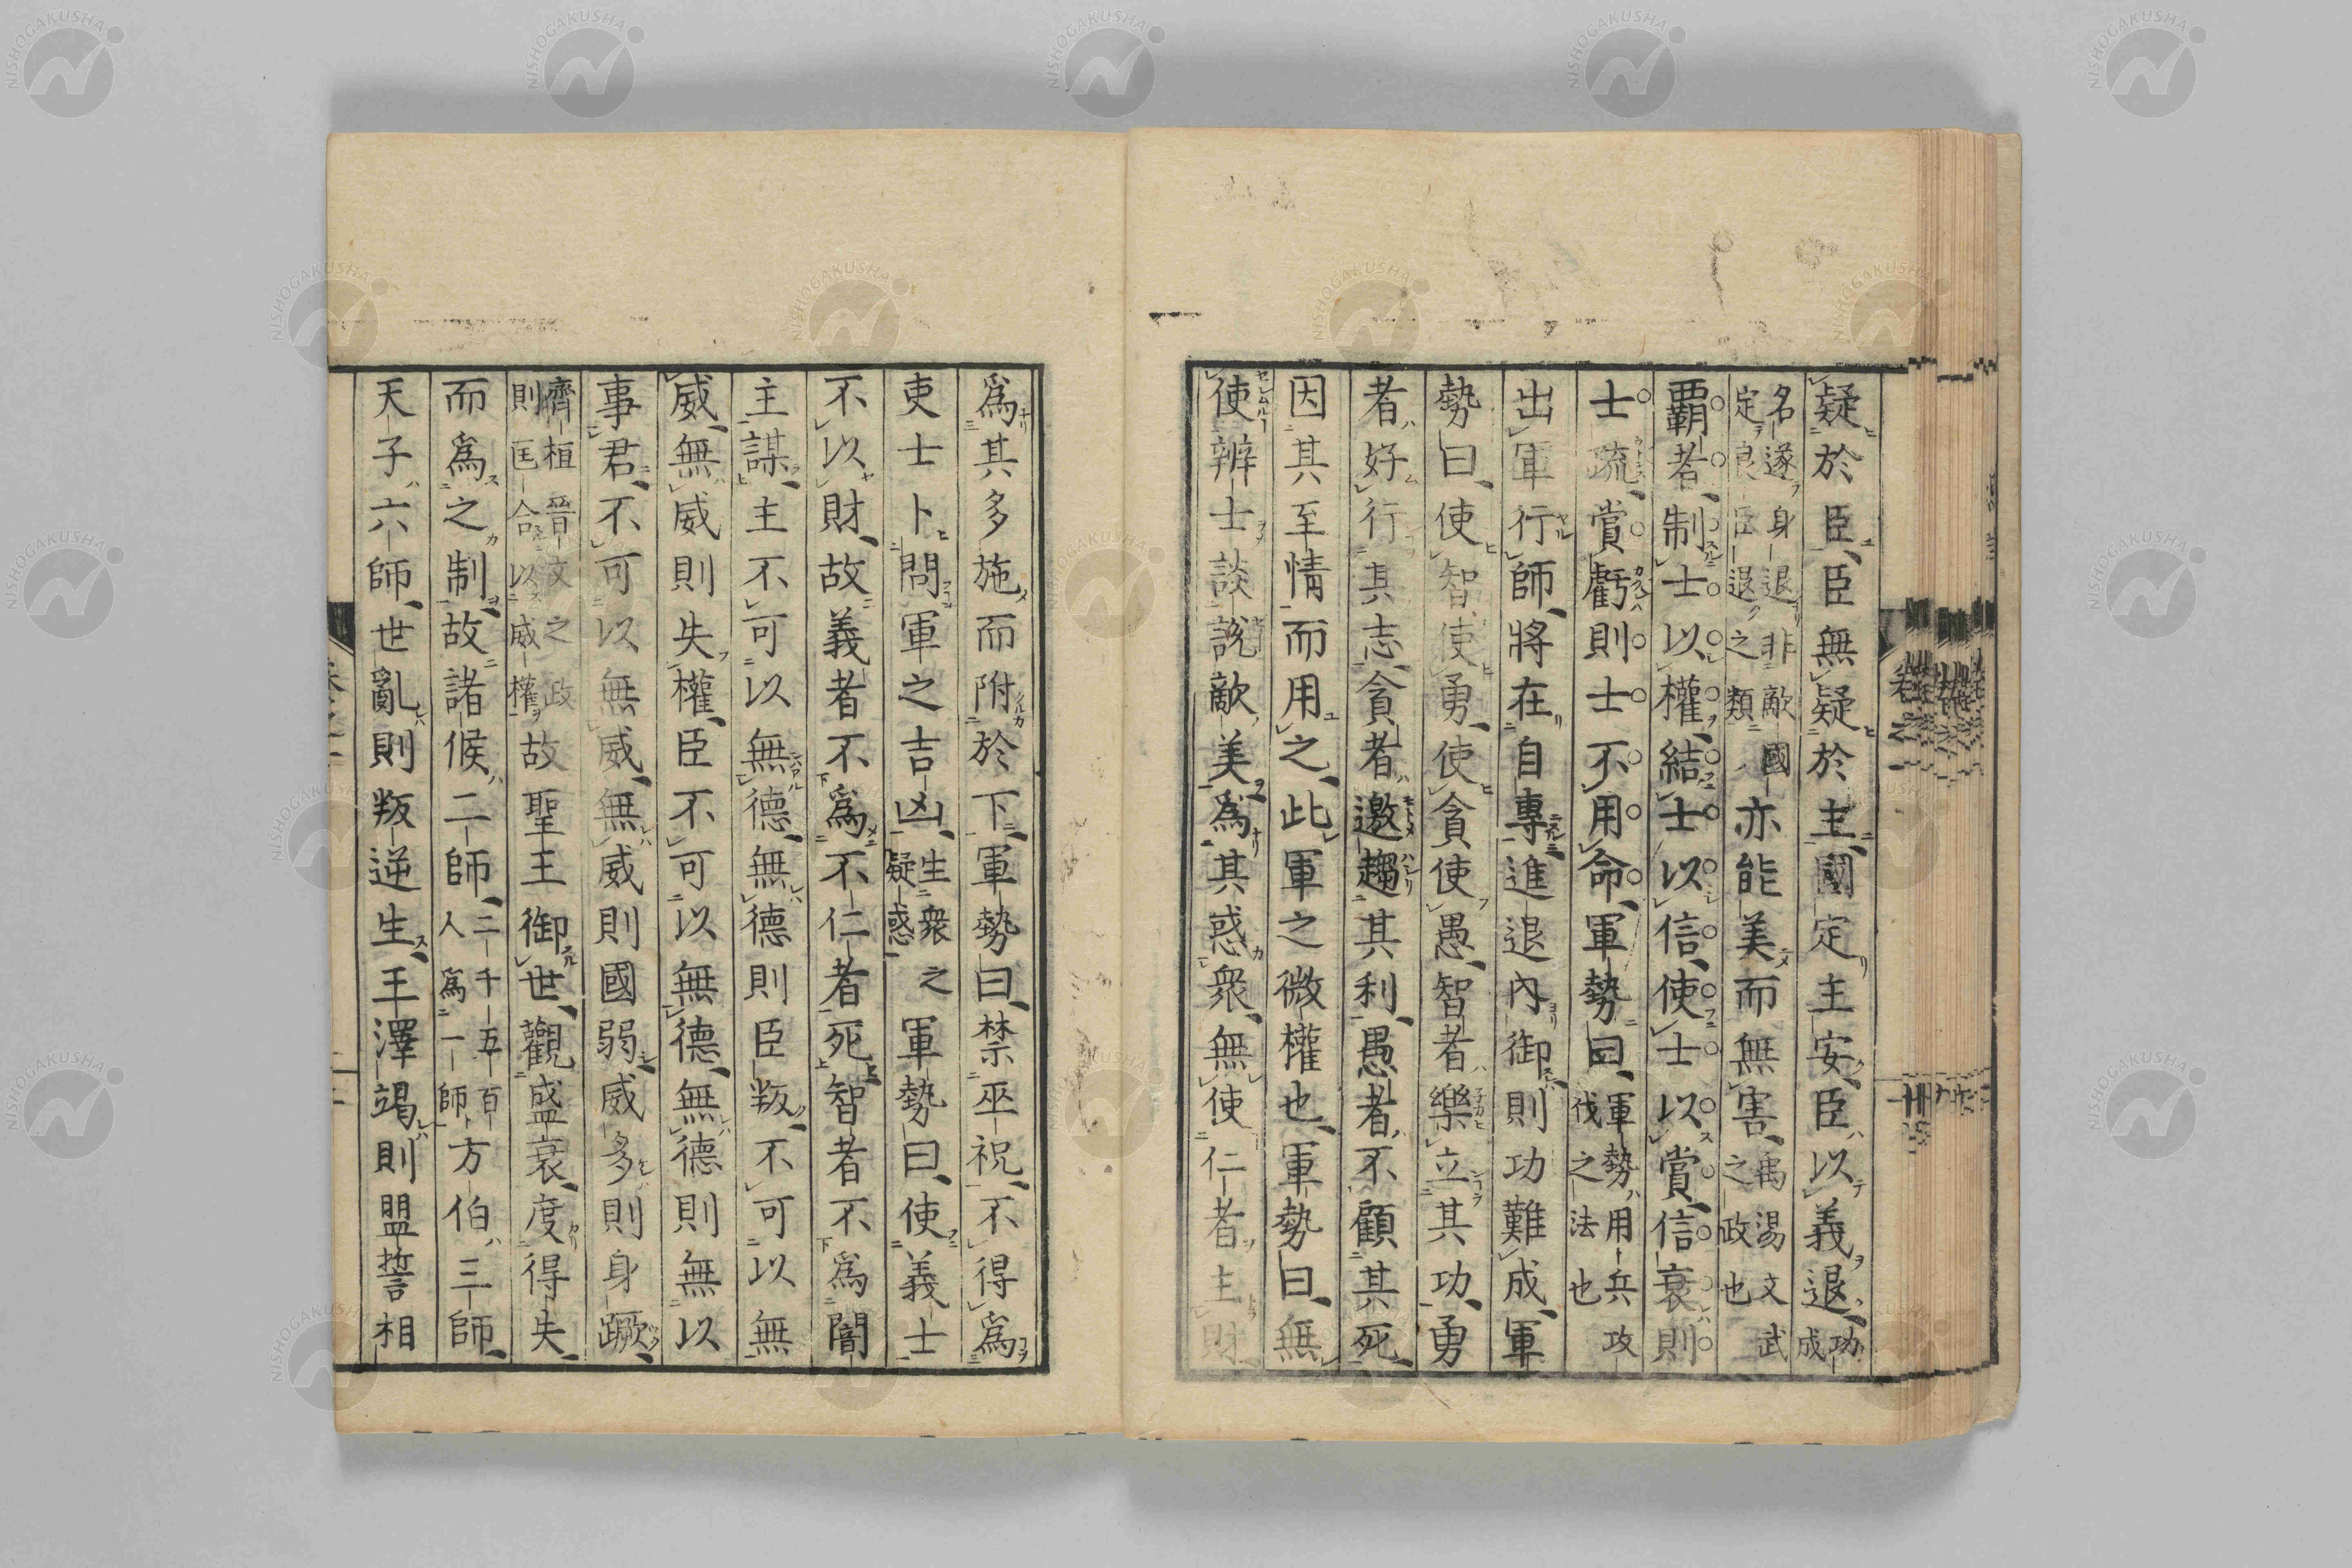 疑於臣、臣無疑於主、國定主安、臣以義退、功成
名遂身退非敵國定良臣退之類亦能美而無害、禹湯文武之政也
覇者、制士以權、結士以信、使士以賞、信衰則
士疏、賞虧則士不用命、軍勢曰、軍勢用兵攻伐之法也
出軍行師、將在自專進退内御則功難成、軍
勢曰、使智使勇、使貪使愚、智者樂立其功、勇
者好行其志、貪者邀趨其利、愚者不顧其死、
因其至情而用之、此軍之微權也、軍勢曰、無
使辨士談説敵美爲其惑衆、無使仁者主財、
爲其多施而附於下、軍勢曰、禁巫祝、不得爲
吏士卜問軍之吉凶、生疑衆之惑軍勢曰、使義士
不以財、故義者不爲不仁者死、智者不爲闇
主謀、主不可以無德、無德則臣叛、不可以無
威、無威則失權、臣不可以無德、無德則無以
事君、不可以無威、無威則國弱、威多則身蹶、
齊桓晉文之政則匡合以威權故聖王御世、觀盛衰、度得失、
而爲之制、故諸侯二師、二千五百人爲一師方伯三師、
天子六師、世亂則叛逆生、王澤竭則盟誓相
NISHOGAKUSHA